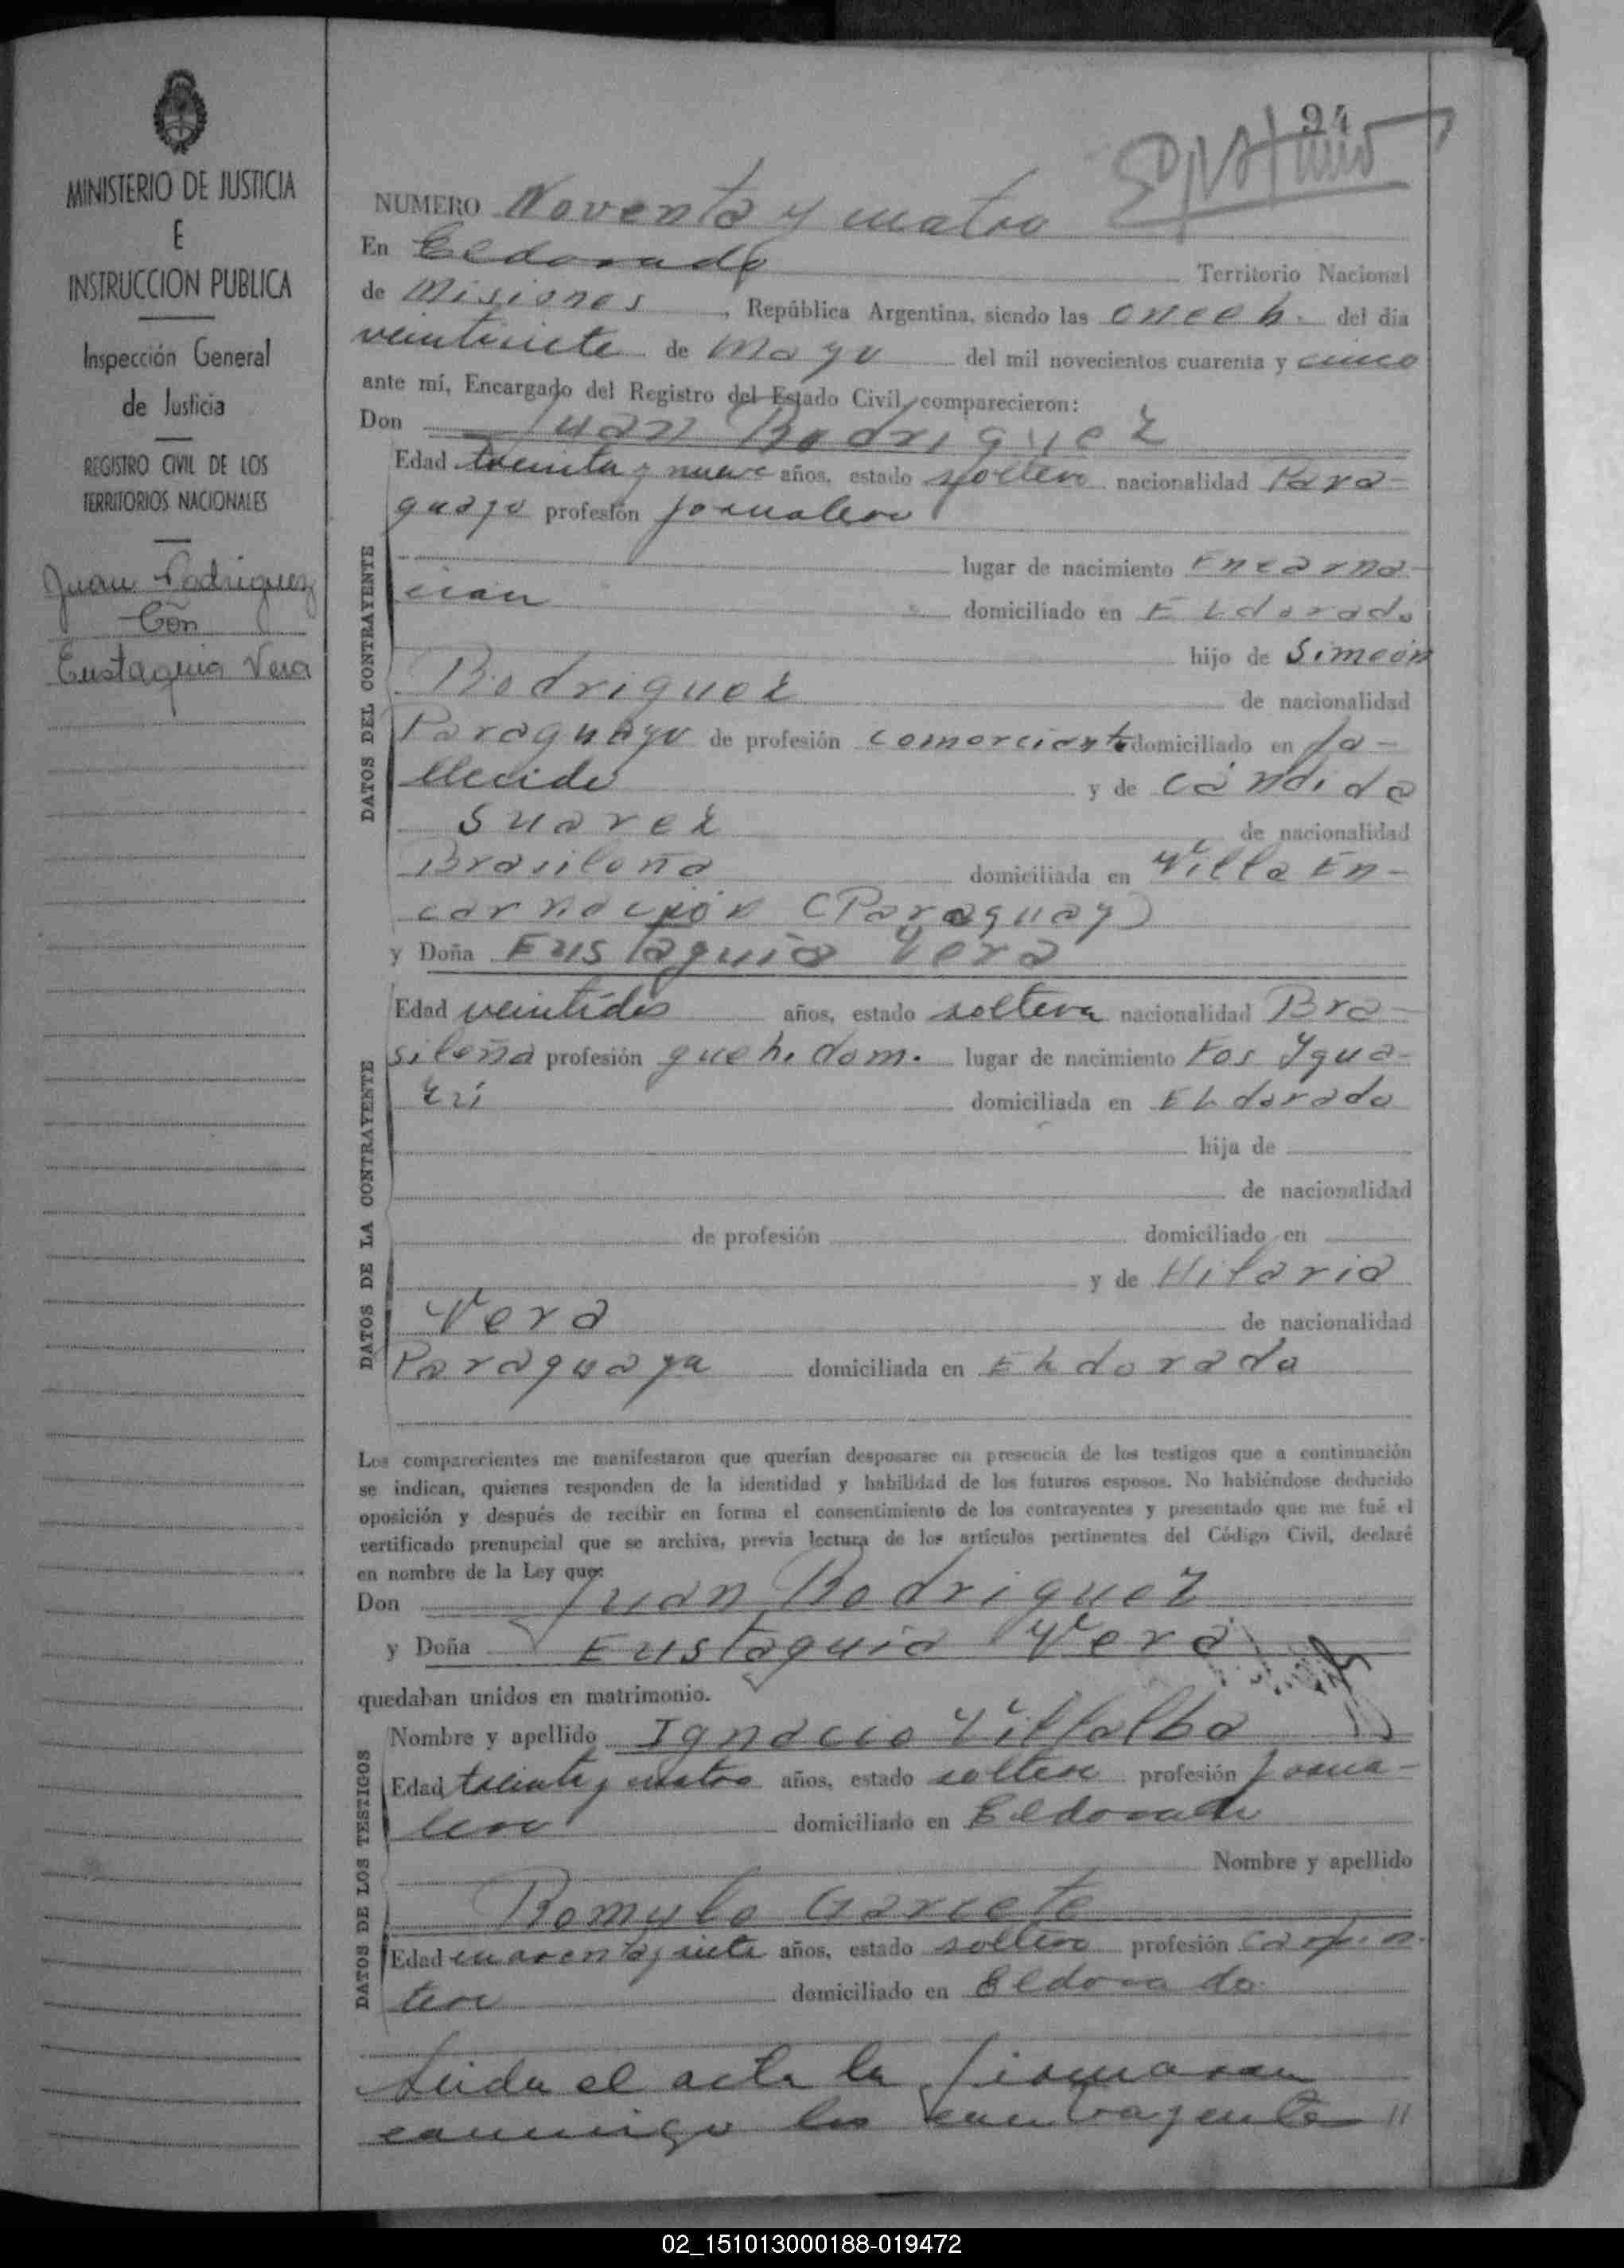 MINISTERIO DE JUSTICIA
E
INSTRUCCION PUBLICA
Inspección General
de Justicia
REGISTRO CIVIL DE LOS
TERRITORIOS NACIONALES
Juan Rodriguez
Con
Eustaquia Vera
94
NUMERO Noventa y cuatro
En Eldorado Territorio Nacional
de Misiones, República Argentina, siendo las once h. del día
veintisiete de Mayo del mil novecientos cuarenta y cinco
ante mí, Encargado del Registro del Estado Civil, comparecieron:
Don Juan Rodriguez
DATOS DEL CONTRAYENTE
Edad treinta y nueve años, estado soltero nacionalidad Para-
guayo profesión jornalero
lugar de nacimiento Encarna-
cion domiciliado en ELdorado
hijo de Simeón
Rodriguez de nacionalidad
Paraguayo de profesión comerciante domiciliado en fa-
llecido y de Cándida
Suarez de nacionalidad
Brasileña domiciliada en Villa En-
carnación (Paraguay)
y Doña Eustaquia Vera
DATOS DE LA CONTRAYENTE
Edad veintidós años, estado soltera nacionalidad Bra-
sileña profesión queh. dom. lugar de nacimiento Fos Ygua-
zú domiciliada en ELdorado
hija de
de nacionalidad
de profesión domiciliado en
y de Hilaria
Vera de nacionalidad
Paraguaya domiciliada en ELdorado
Los comparecientes me manifestaron que querían desposarse en presencia de los testigos que a continuación
se indican, quienes responden de la identidad y habilidad de los futuros esposos. No habiéndose deducido
oposición y después de recibir en forma el consentimiento de los contrayentes y presentado que me fué el
certificado prenupcial que se archiva, previa lectura de los artículos pertinentes del Código Civil, declaré
en nombre de la Ley que:
Don Juan Rodriguez
y Doña Eustaquia Vera
quedaban unidos en matrimonio.
DATOS DE LOS TESTIGOS
Nombre y apellido Ignacio Villalba
Edad treinta y cuatro años, estado soltero profesión jorna-
lero domiciliado en Eldorado
Nombre y apellido
Romulo Garcete
Edad cuarenta y siete años, estado soltero profesión carpin-
tero domiciliado en Eldorado
Leida el acta la firmaron
conmigo los contrayentes //
02_151013000188-019472